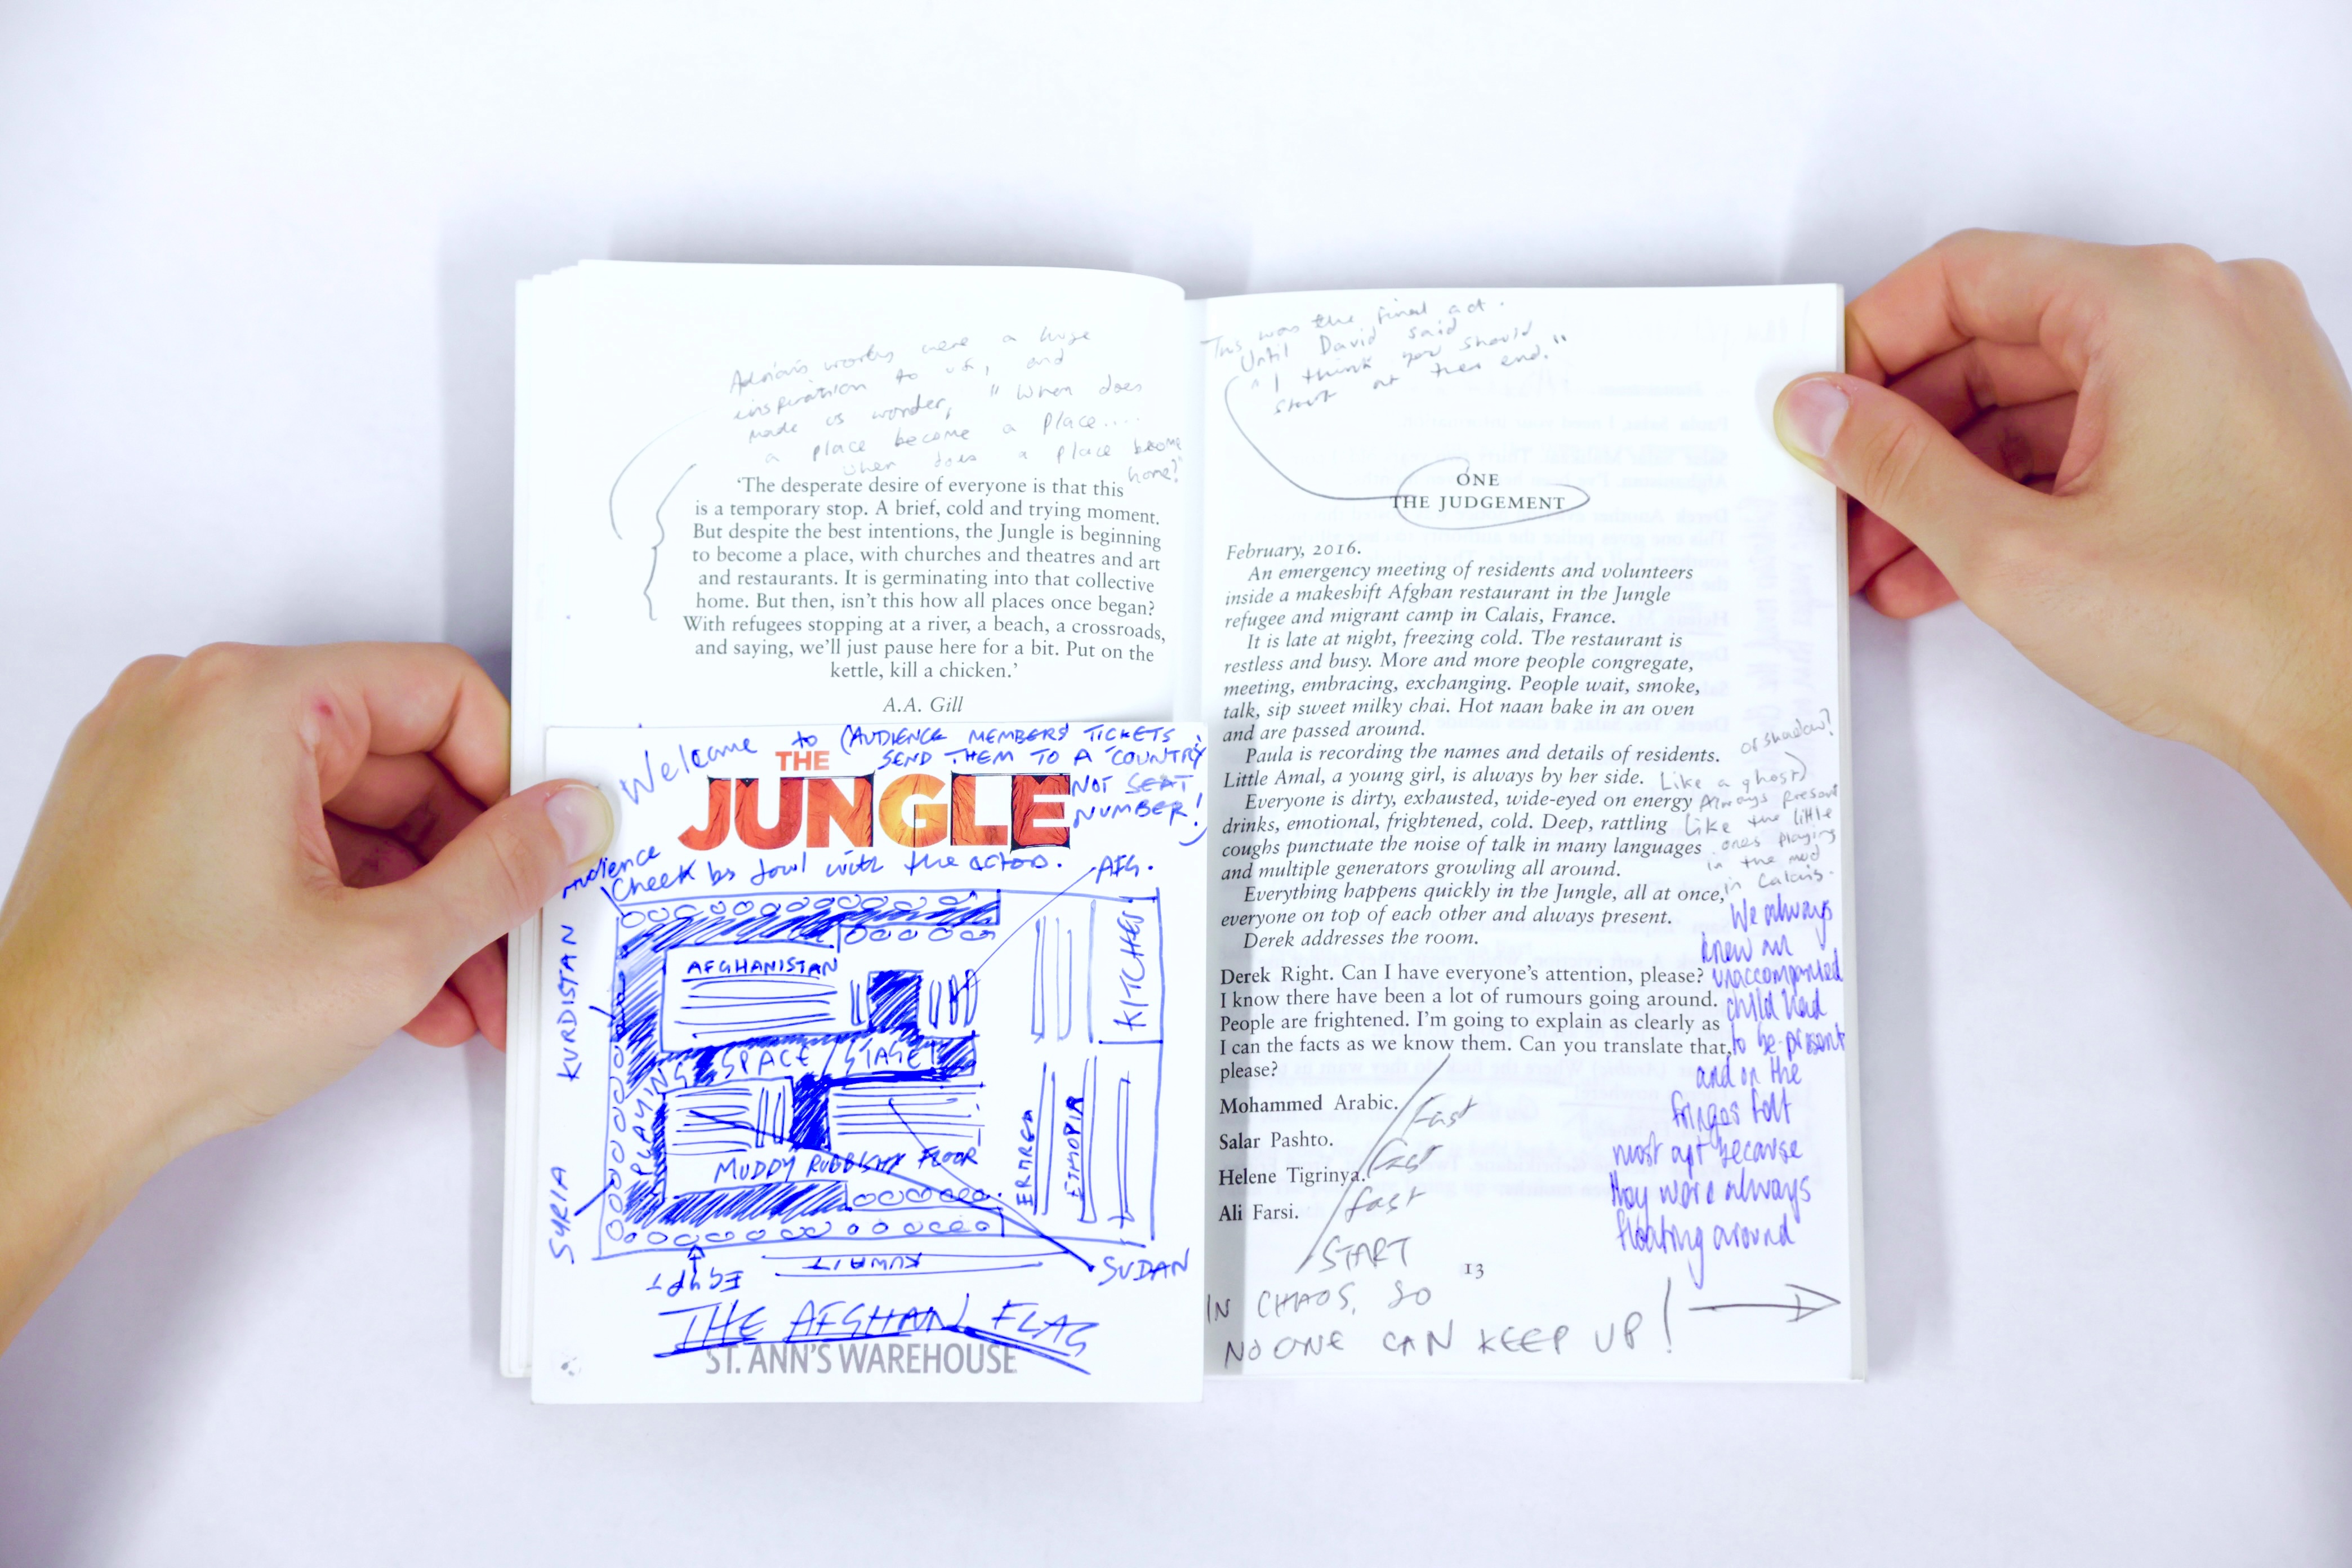 Adrian's works were a huge
inspiration to us, and
made us wonder, "When does
a place become a place....
when does a place become
home?"
'The desperate desire of everyone is that this
is a temporary stop. A brief, cold and trying moment.
But despite the best intentions, the Jungle is beginning
to become a place, with churches and theatres and art
and restaurants. It is germinating into that collective
home. But then, isn't this how all places once began?
With refugees stopping at a river, a beach, a crossroads,
and saying, we'll just pause here for a bit. Put on the
kettle, kill a chicken.'
A.A. Gill
Welcome to
(AUDIENCE MEMBERS' TICKETS
SEND THEM TO A 'COUNTRY'
NOT SEAT
NUMBER!)
THE
JUNGLE
Audience
Cheek by Jowl with the actors.
AFG.
KURDISTAN
AFGHANISTAN
KITCHEN
PLAYING SPACE / STAGE
ERITREA
ETHIOPIA
MUDDY RUBBISHY FLOOR
SYRIA
EGYPT
KUWAIT
SUDAN
THE AFGHAN FLAG
ST. ANN'S WAREHOUSE
This was the final act.
Until David said
"I think you should
start at the end."
ONE
THE JUDGEMENT
February, 2016.
An emergency meeting of residents and volunteers
inside a makeshift Afghan restaurant in the Jungle
refugee and migrant camp in Calais, France.
It is late at night, freezing cold. The restaurant is
restless and busy. More and more people congregate,
meeting, embracing, exchanging. People wait, smoke,
talk, sip sweet milky chai. Hot naan bake in an oven
and are passed around.
Paula is recording the names and details of residents.
Little Amal, a young girl, is always by her side.
Everyone is dirty, exhausted, wide-eyed on energy
drinks, emotional, frightened, cold. Deep, rattling
coughs punctuate the noise of talk in many languages
and multiple generators growling all around.
Everything happens quickly in the Jungle, all at once,
everyone on top of each other and always present.
Derek addresses the room.
or shadow?
Like a ghost
Always present
like the little
ones playing
in the mud
in Calais.
Derek Right. Can I have everyone's attention, please?
I know there have been a lot of rumours going around.
People are frightened. I'm going to explain as clearly as
I can the facts as we know them. Can you translate that,
please?
Mohammed Arabic.
Salar Pashto.
Helene Tigrinya.
Ali Farsi.
We always
knew an
unaccompanied
child had
to be present
and on the
fringes felt
most apt because
they were always
floating around
fast
fast
fast
START
IN CHAOS, SO
NO ONE CAN KEEP UP!
13